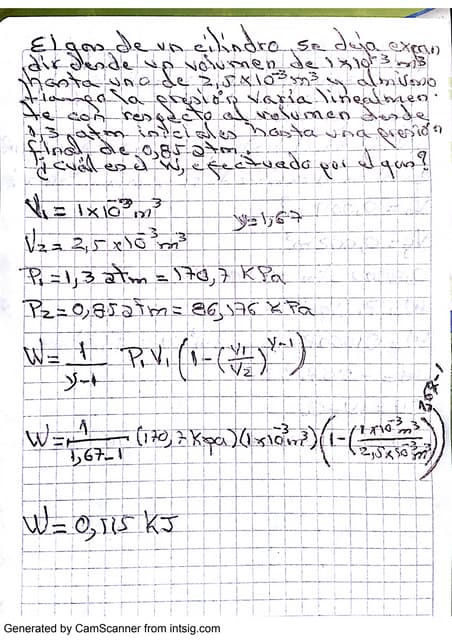 El gas de un cilindro se deja expan
dir desde un volumen de 1x10⁻³ m³
hasta uno de 2,5x10⁻³ m³ y al mismo
tiempo la presión varía linealmen-
te con respecto al volumen desde
1,3 atm iniciales hasta una presión
final de 0,85 atm.
¿cuál es el W, efectuado por el gas?
V₁ = 1x10⁻³ m³ γ=1,67
V₂ = 2,5x10⁻³ m³
P₁ = 1,3 atm = 170,7 KPa
P₂ = 0,85 atm = 86,176 KPa
W = 1/(γ-1) P₁ V₁ (1-(V₁/V₂)^(γ-1))
W = 1/(1,67-1) (170,7 Kpa)(1x10⁻³ m³)(1-(1x10⁻³ m³/2,5x10⁻³ m³)^(1,67-1))
W = 0,115 KJ
Generated by CamScanner from intsig.com